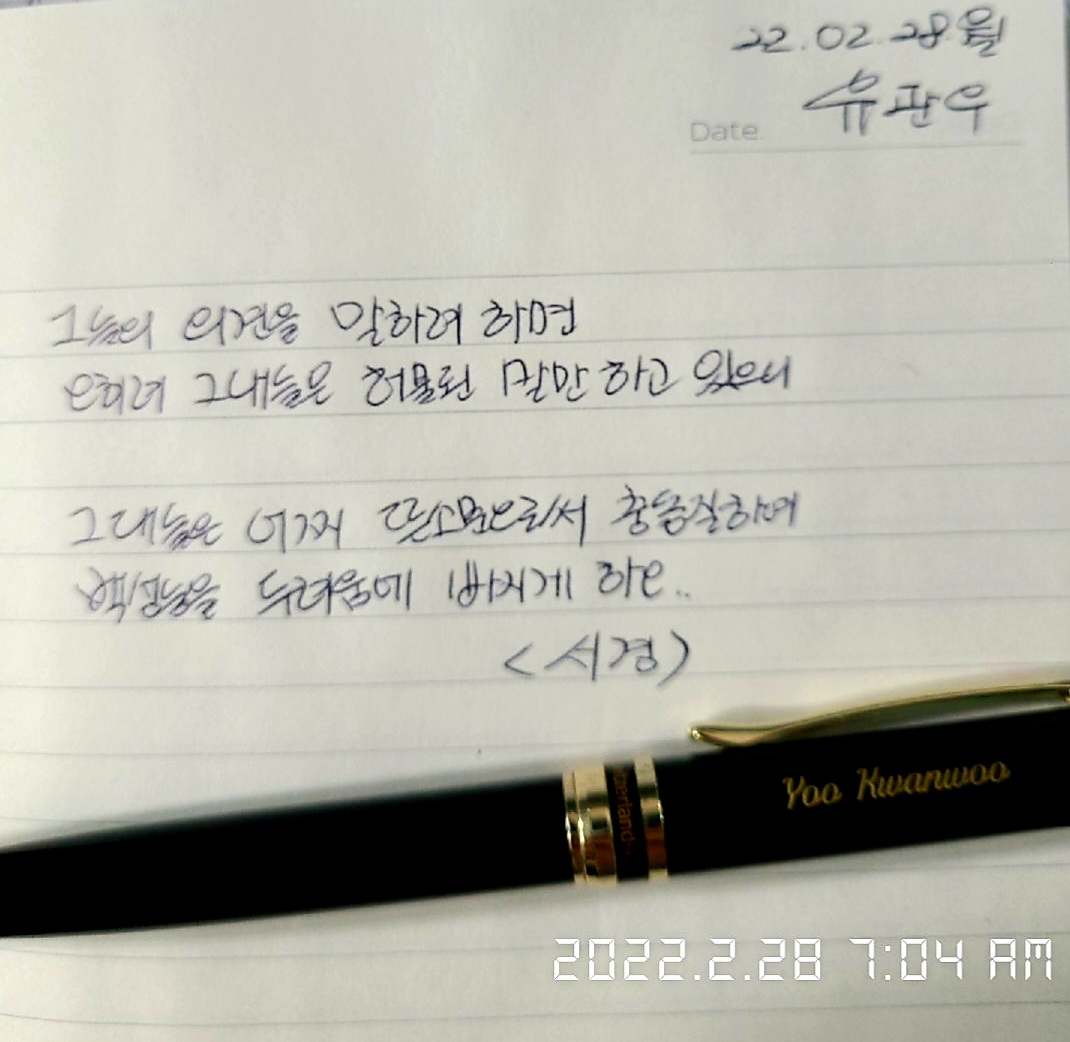 22.02.28월
유관우
Date.
그들의 의견을 말하려 하면
오히려 그대들은 허물된 말만 하고 있으니
그대들은 어찌 뜬소문으로써 충동질하여
백성들을 두려움에 빠지게 하오..
<서경>
Yoo Kwanwoo
2022.2.28 7:04 AM